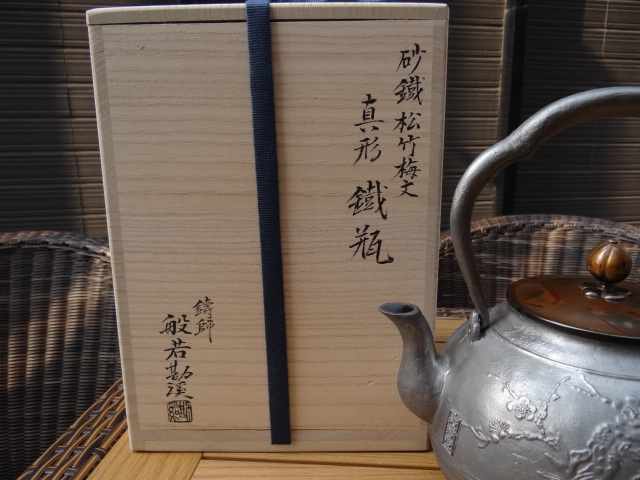 砂鐵松竹梅文
真形鐵瓶
鋳師
般若勘渓